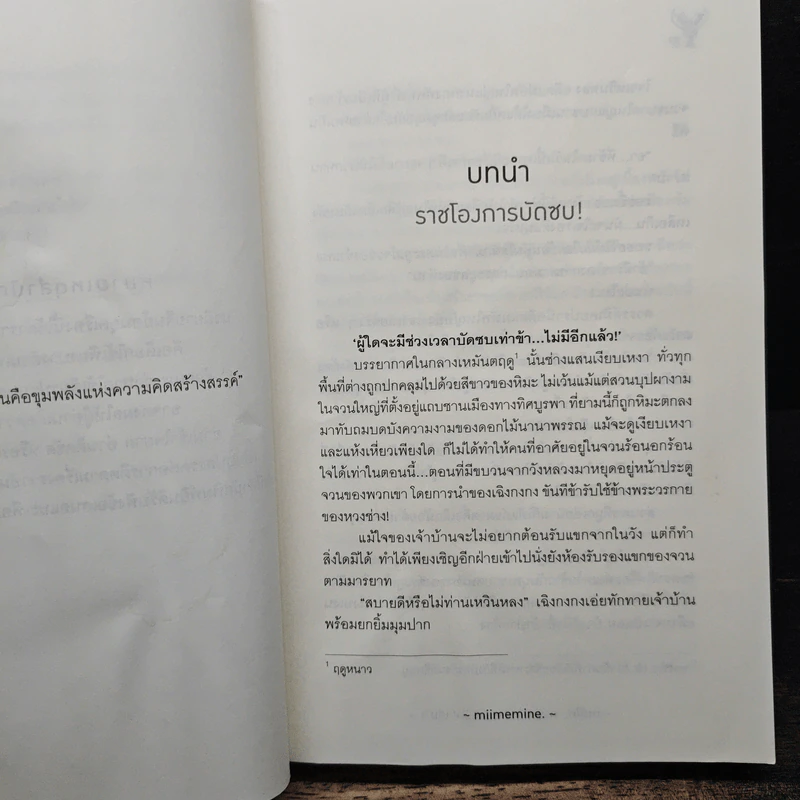 นคือขุมพลังแห่งความคิดสร้างสรรค์"
บทนำ
ราชโองการบัดซบ!
'ผู้ใดจะมีช่วงเวลาบัดซบเท่าข้า...ไม่มีอีกแล้ว!'
บรรยากาศในกลางเหมันตฤดู¹ นั้นช่างแสนเงียบเหงา ทั่วทุก
พื้นที่ต่างถูกปกคลุมไปด้วยสีขาวของหิมะ ไม่เว้นแม้แต่สวนบุปผางาม
ในจวนใหญ่ที่ตั้งอยู่แถบชานเมืองทางทิศบูรพา ที่ยามนี้ก็ถูกหิมะตกลง
มาทับถมบดบังความงามของดอกไม้นานาพรรณ แม้จะดูเงียบเหงา
และแห้งเหี่ยวเพียงใด ก็ไม่ได้ทำให้คนที่อาศัยอยู่ในจวนร้อนอกร้อน
ใจได้เท่าในตอนนี้...ตอนที่มีขบวนจากวังหลวงมาหยุดอยู่หน้าประตู
จวนของพวกเขา โดยการนำของเฉิงกงกง ขันทีข้ารับใช้ข้างพระวรกาย
ของหวงซ่าง!
แม้ใจของเจ้าบ้านจะไม่อยากต้อนรับแขกจากในวัง แต่ก็ทำ
สิ่งใดมิได้ ทำได้เพียงเชิญอีกฝ่ายเข้าไปนั่งยังห้องรับรองแขกของจวน
ตามมารยาท
"สบายดีหรือไม่ท่านเหวินหลง" เฉิงกงกงเอ่ยทักทายเจ้าบ้าน
พร้อมยกยิ้มมุมปาก
¹ ฤดูหนาว
~ miimemine. ~